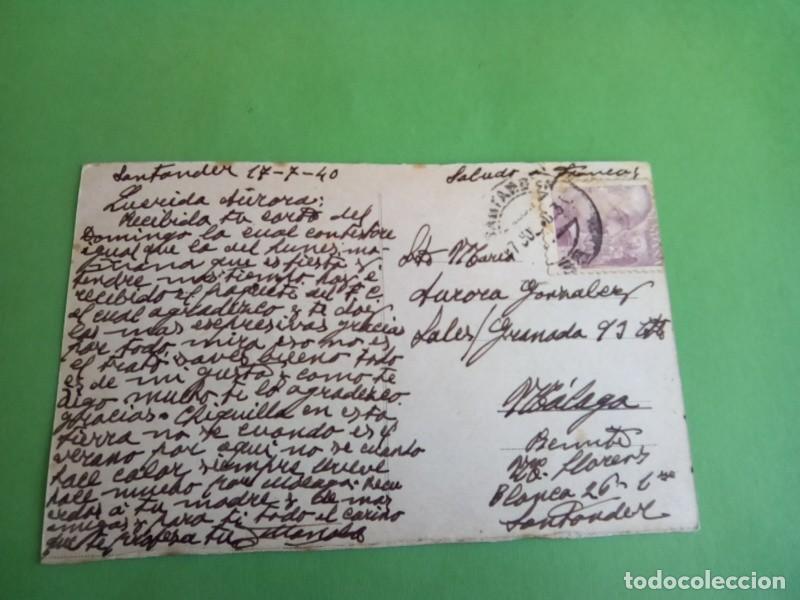 Santander 17-7-40
Saludo a
Querida Aurora:
Recibida tu carta del
Domingo la cual contestare
igual que la del lunes ma-
ñana que es fiesta y
tendre mas tiempo hoy e
recibido el paquete del F.C.
el cual agradezco y te doy
las mas expresivas gracias
por todo mira eso no es
el trato saves bueno todo
es de mi gusto y como te
digo mucho ti lo agradezco
gracias. Chiquilla en esta
tierra no se cuando es el
verano por aqui no se cuanto
hace calor siempre llueve
hace mucho Recu
erdos a tu madre y de mas
amigas y para ti todo el cariño
que te profesa tu
SANTANDER
Srta Maria
Aurora Gonzalez
Sales/Granada 93
Málaga
Remite
M. Llorens
Blanca 26
Santander
todocoleccion
todocoleccion.net